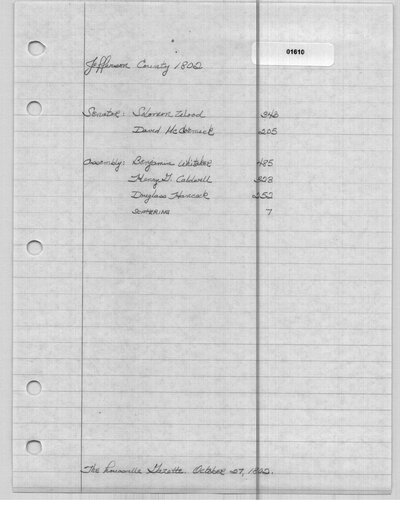 01610
Jefferson County 1802
Senator: Solomon Wood 346
David McCormick 205
Assembly: Benjamin Whitaker 485
Henry G. Caldwell 328
Douglass Hancock 252
SCATTERING 7
The Louisville Gazette. October 27, 1802.